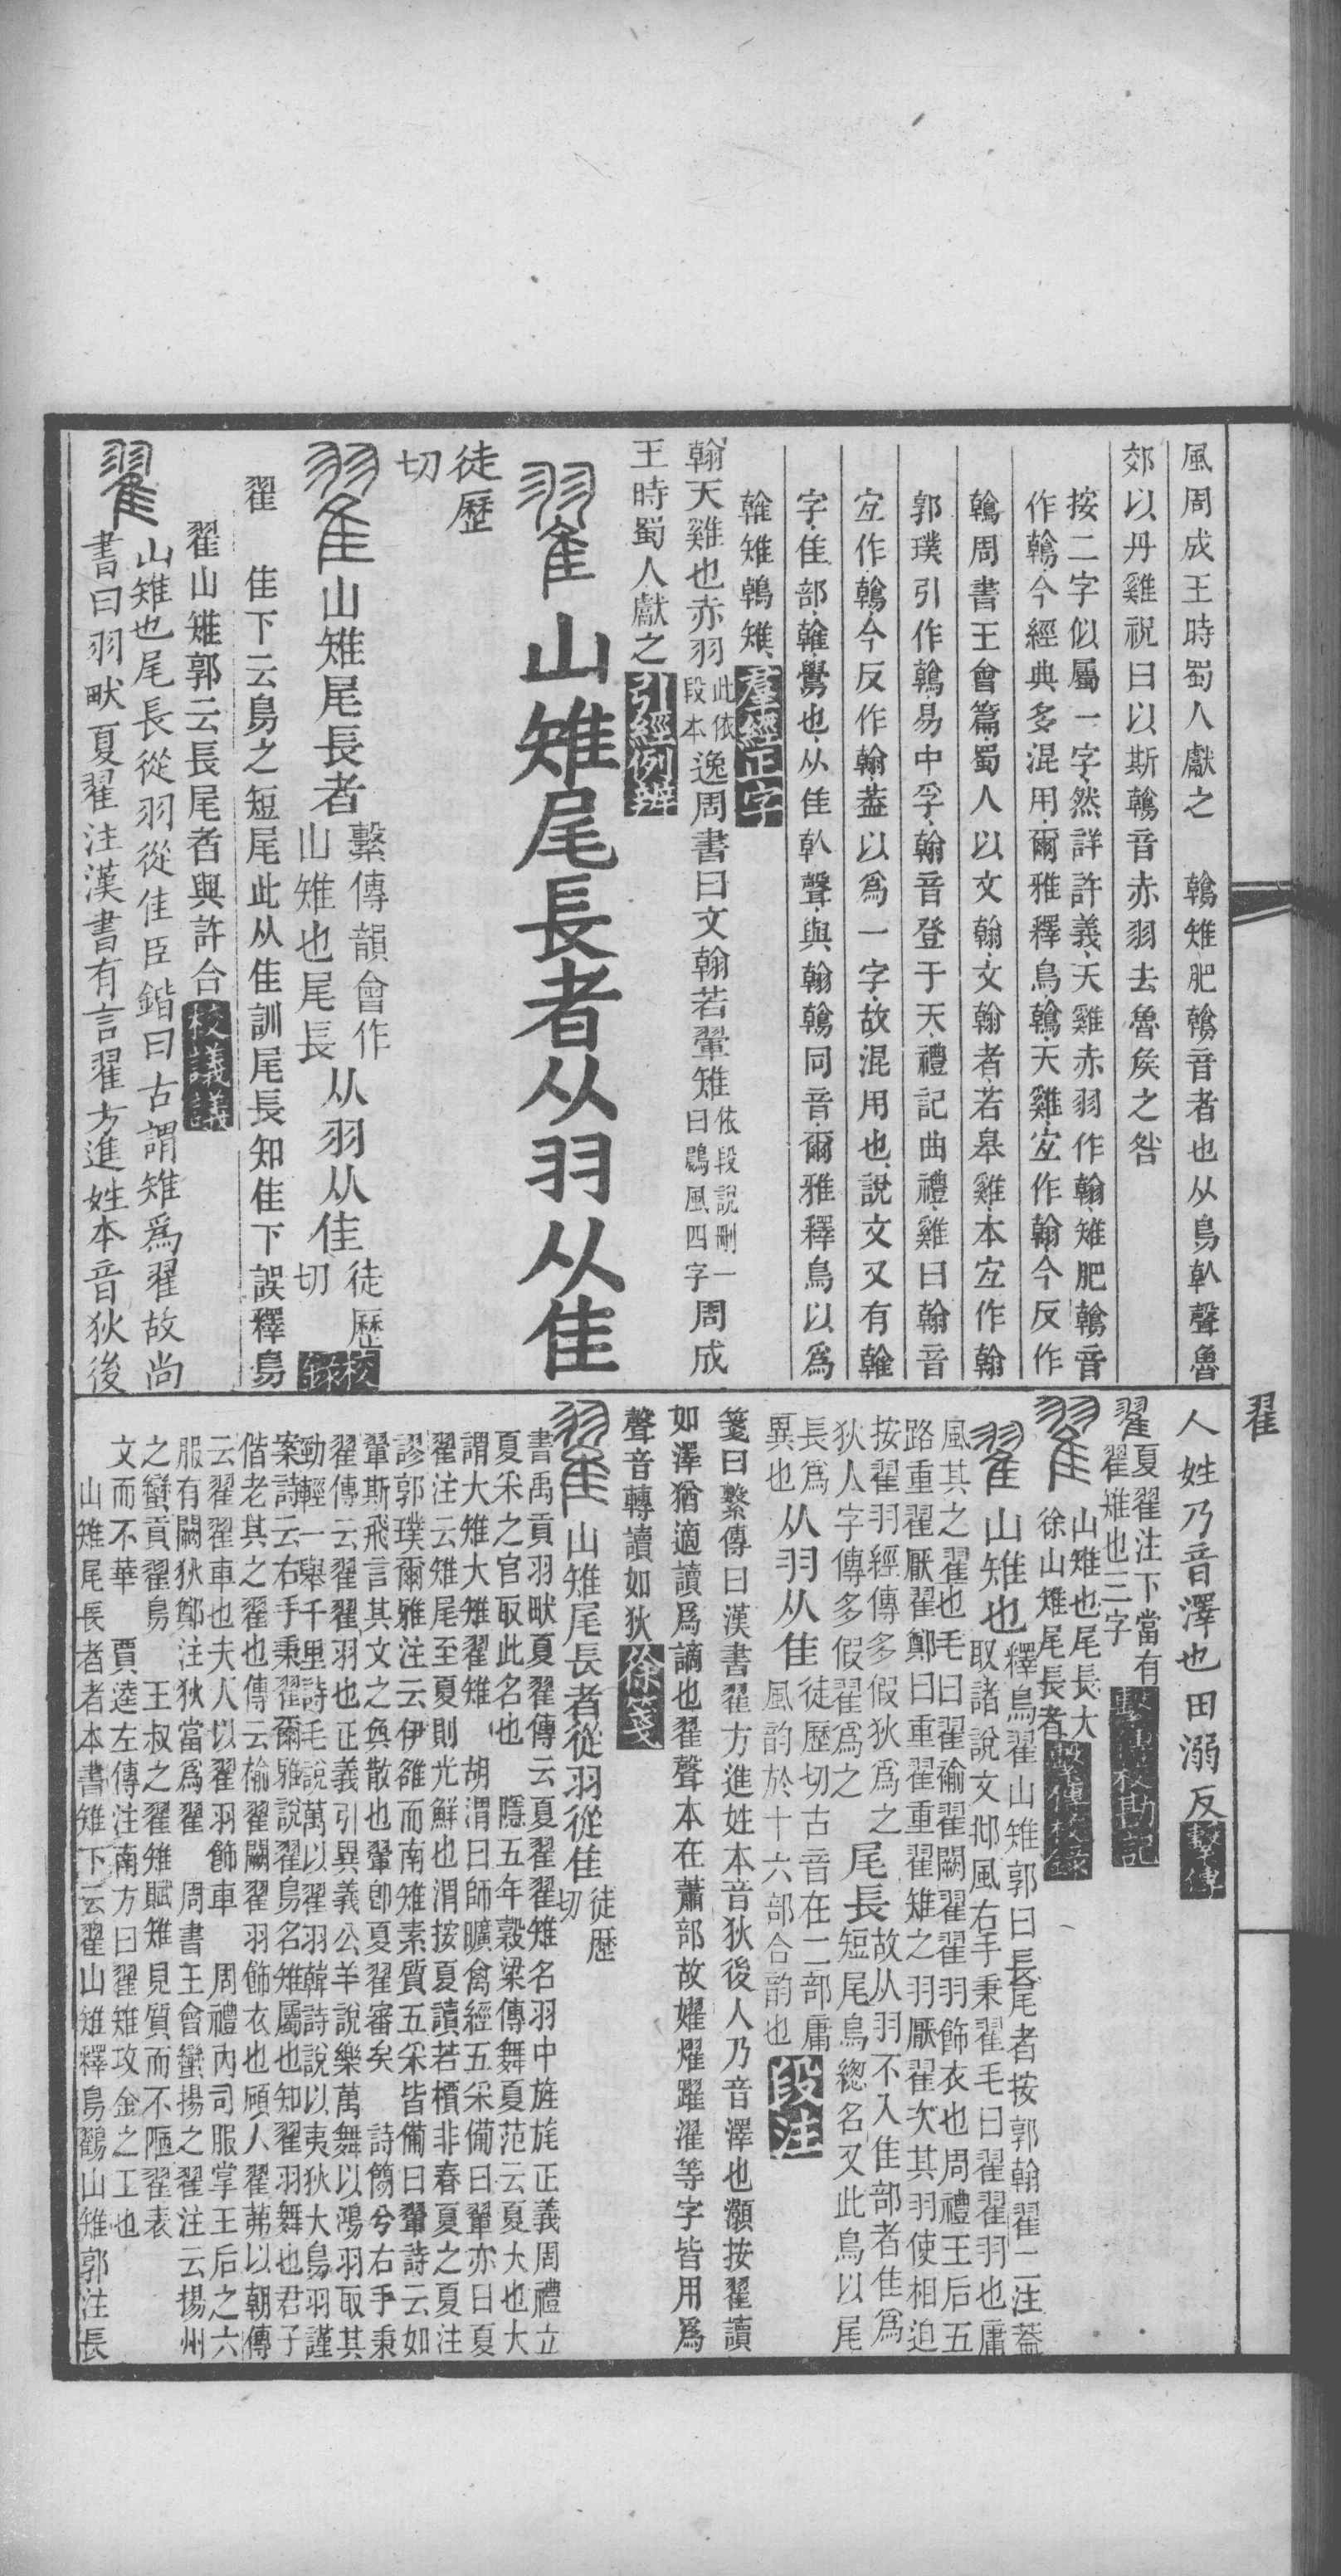 風周成王時蜀人獻之　鶾雉肥鶾音者也从鳥倝聲魯
郊以丹雞祝曰以斯鶾音赤羽去魯矦之咎
按二字似屬一字然詳許義天雞赤羽作翰雉肥鶾音
作鶾今經典多混用爾雅釋鳥鶾天雞宐作翰今反作
鶾周書王會篇蜀人以文翰文翰者若皋雞本宐作翰
郭璞引作鶾易中孚翰音登于天禮記曲禮雞曰翰音
宐作鶾今反作翰葢以爲一字故混用也說文又有雗
字隹部雗鷽也从隹倝聲與翰鶾同音爾雅釋鳥以爲
雗雉鶾雉羣經正字
翰天雞也赤羽此依段本逸周書曰文翰若翬雉依段說刪一曰鷐風四字周成
王時蜀人獻之引經例辨
翟山雉尾長者从羽从隹
徒歷
切
翟山雉尾長者繫傳韻會作山雉也尾長从羽从隹徒歷切校錄
翟　隹下云鳥之短尾此从隹訓尾長知隹下誤釋鳥
翟山雉郭云長尾者與許合校議議
翟山雉也尾長從羽從隹臣鍇曰古謂雉爲翟故尚
書曰羽畎夏翟注漢書有言翟方進姓本音狄後
翟
人姓乃音澤也田溺反繫傳
翟夏翟注下當有翟雉也三字繫傳校勘記
翟山雉也尾長大徐山雉尾長者繫傳校錄
翟山雉也釋鳥翟山雉郭曰長尾者按郭翰翟二注葢
取諸說文邶風右手秉翟毛曰翟翟羽也庸
風其之翟也毛曰翟褕翟闕翟翟羽飾衣也周禮王后五
路重翟厭翟鄭曰重翟重翟雉之羽厭翟次其羽使相迫
按翟羽經傳多假狄爲之
狄人字傳多假翟爲之尾長故从羽不入隹部者隹爲
短尾鳥緫名又此鳥以尾
長爲
異也从羽从隹徒歷切古音在二部庸
風韵於十六部合韵也段注
箋曰繫傳曰漢書翟方進姓本音狄後人乃音澤也灝按翟讀
如澤猶適讀爲謫也翟聲本在蕭部故嬥燿躍濯等字皆用爲
聲音轉讀如狄徐箋
翟山雉尾長者從羽從隹徒歷切
書禹貢羽畎夏翟傳云夏翟翟雉名羽中旌旄正義周禮立
夏采之官取此名也　隱五年穀梁傳舞夏范云夏大也大
謂大雉大雉翟雉　胡渭曰師曠禽經五采備曰翬亦曰夏
翟注云雉尾至夏則光鮮也渭按夏讀若檟非春夏之夏注
謬郭璞爾雅注云伊雒而南雉素質五采皆備曰翬詩云如
翬斯飛言其文之奐散也翬卽夏翟審矣　詩簡兮右手秉
翟傳云翟翟羽也正義引異義公羊說樂萬舞以鴻羽取其
勁輕一舉千里詩毛說萬以翟羽韓詩說以夷狄大鳥羽謹
案詩云右手秉翟爾雅說翟鳥名雉屬也知翟羽舞也君子
偕老其之翟也傳云褕翟闕翟羽飾衣也碩人翟茀以朝傳
云翟翟車也夫人以翟羽飾車　周禮內司服掌王后之六
服有闕狄鄭注狄當爲翟　周書王會蠻揚之翟注云揚州
之蠻貢翟鳥　王叔之翟雉賦雉見質而不陋翟表
文而不華　賈逵左傳注南方曰翟雉攻金之工也
山雉尾長者者本書雉下云翟山雉釋鳥鸐山雉郭注長